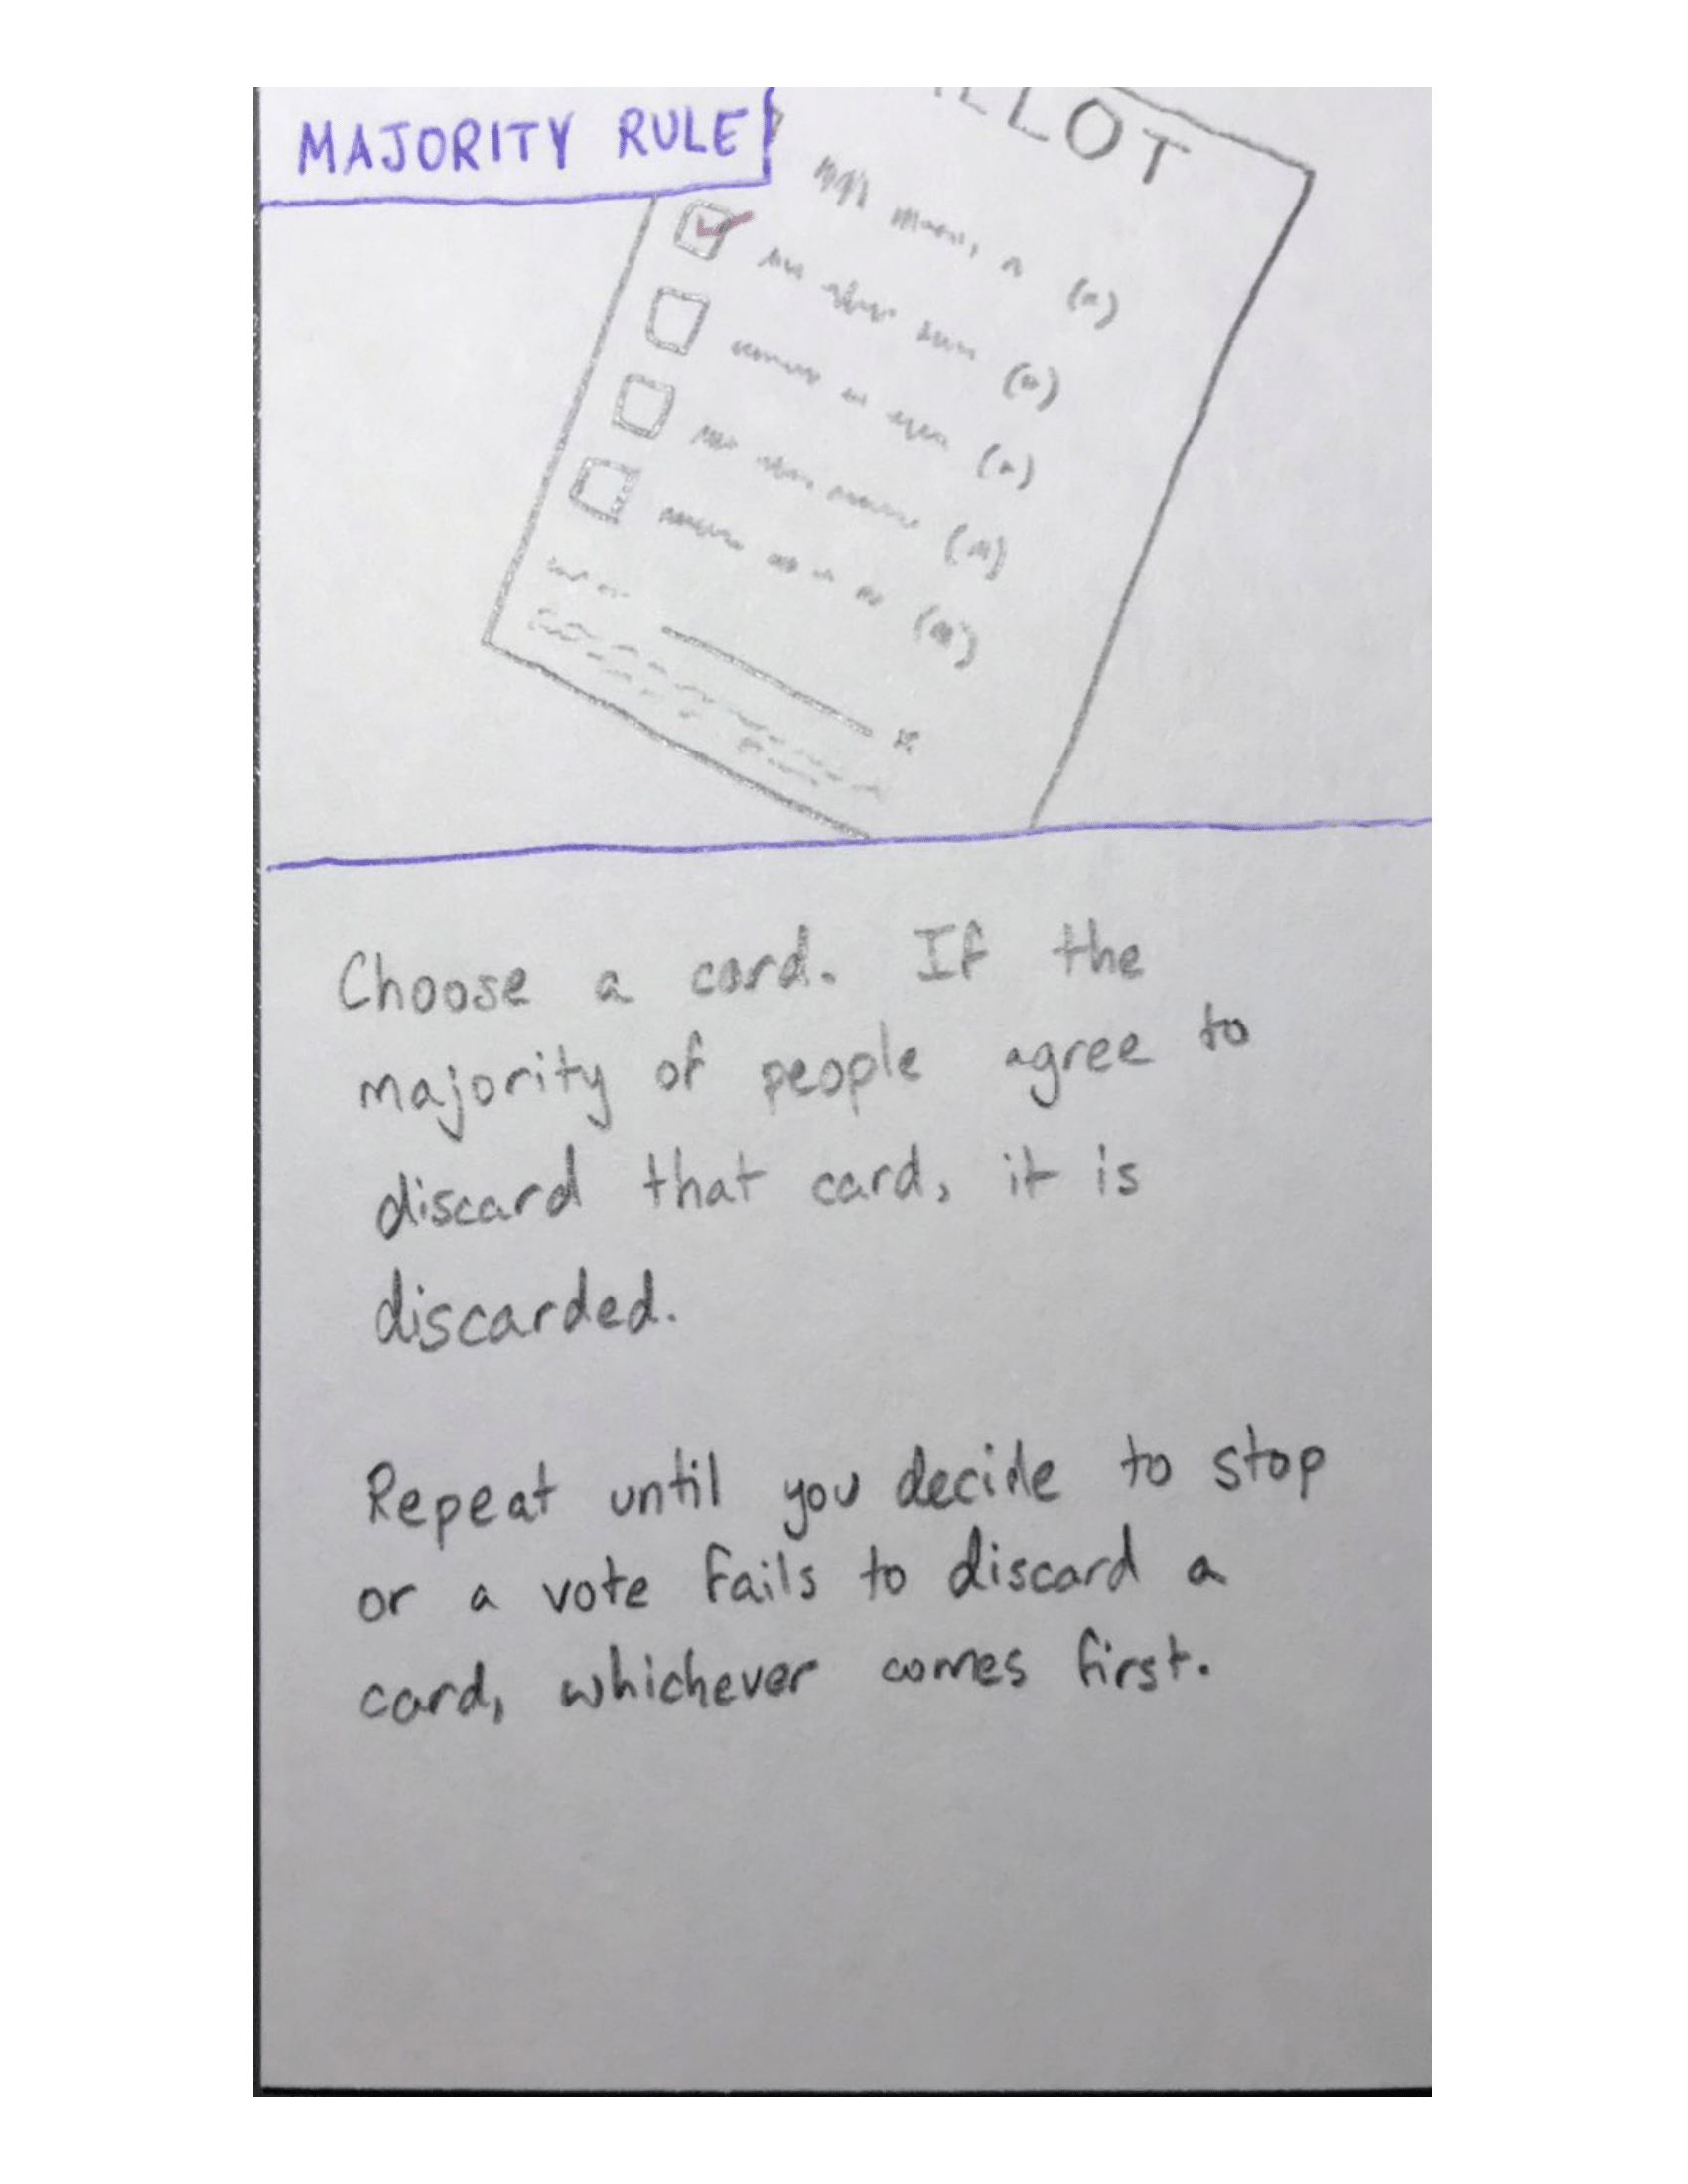 MAJORITY RULE
LLOT
Choose a card. If the
majority of people agree to
discard that card, it is
discarded.
Repeat until you decide to stop
or a vote fails to discard a
card, whichever comes first.